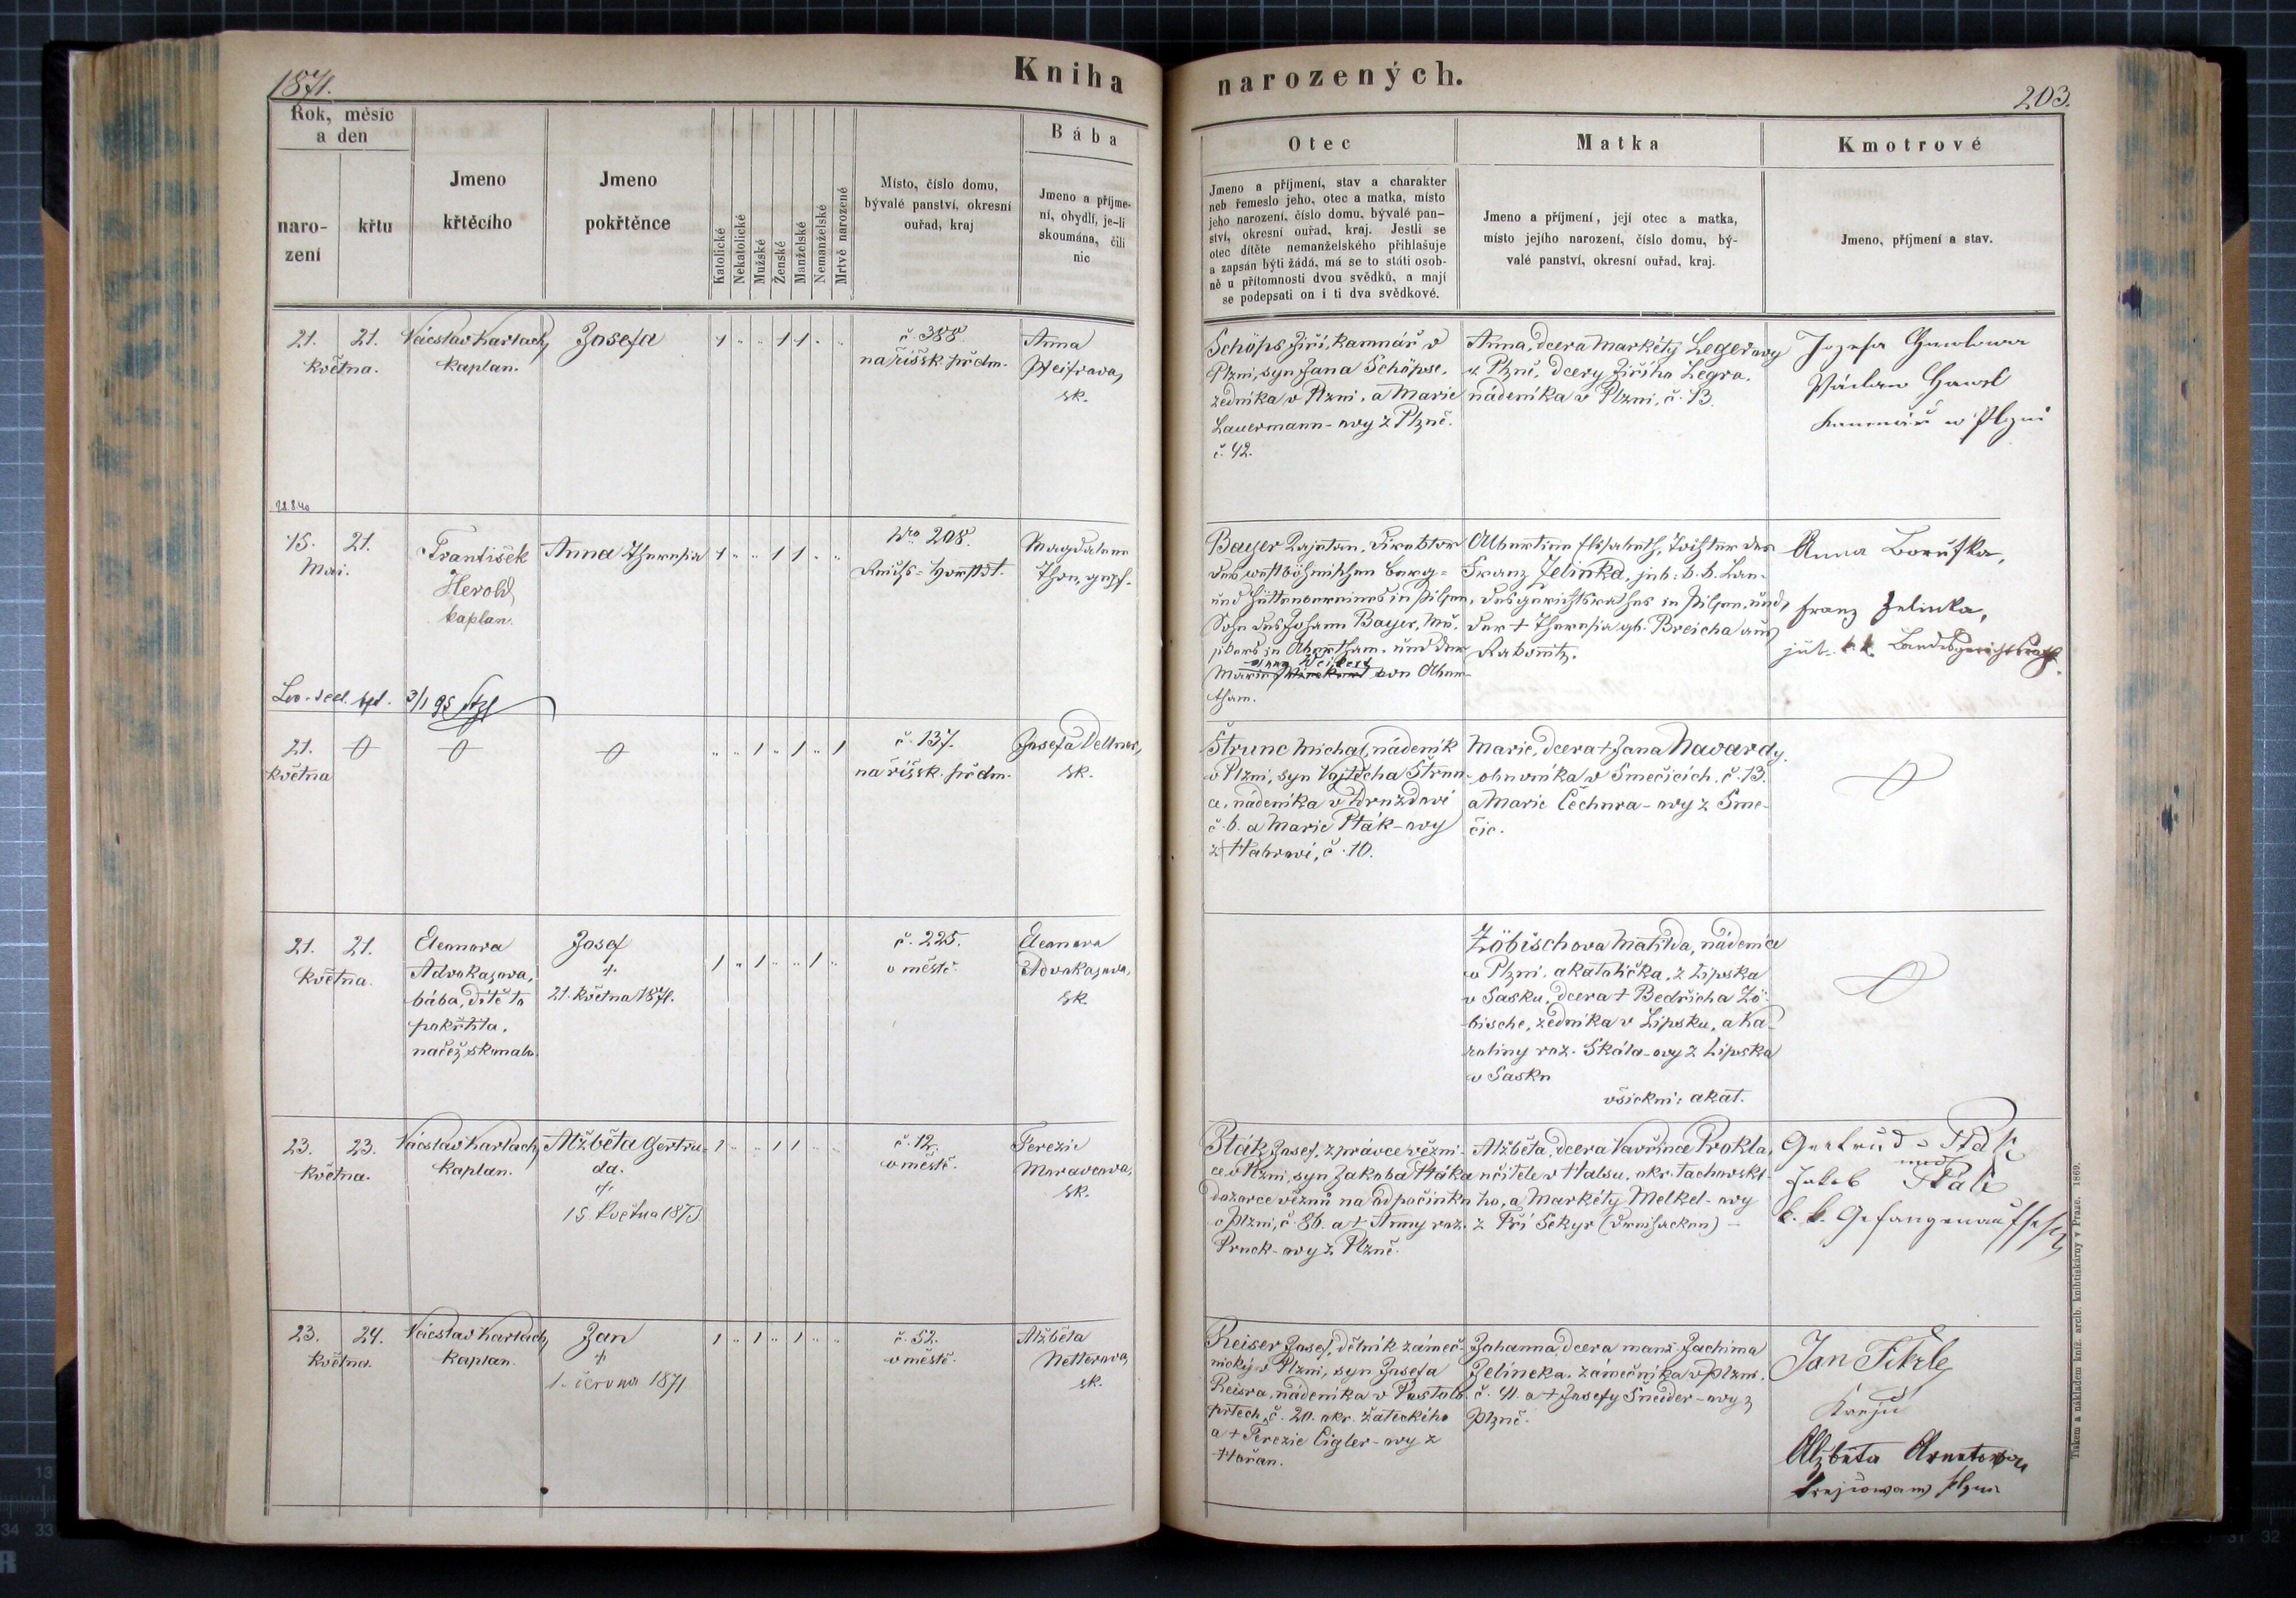 1871.
Kniha
narozených.
203.
Rok, měsíc
a den
naro-
zení
křtu
Jmeno
křtěcího
Jmeno
pokřtěnce
Katolické
Nekatolické
Mužské
Ženské
Manželské
Nemanželské
Mrtvě narozené
Místo, číslo domu,
bývalé panství, okresní
ouřad, kraj
Bába
Jmeno a příjme-
ní, obydlí, je-li
skoumána, čili
nic
Otec
Jmeno a příjmení, stav a charakter
neb řemeslo jeho, otec a matka, místo
jeho narození, číslo domu, bývalé pan-
ství, okresní ouřad, kraj. Jestli se
otec dítěte nemanželského přihlašuje
a zapsán býti žádá, má se to státi osob-
ně u přítomnosti dvou svědků, a mají
se podepsati on i ti dva svědkové.
Matka
Jmeno a příjmení, její otec a matka,
místo jejího narození, číslo domu, bý-
valé panství, okresní ouřad, kraj.
Kmotrové
Jmeno, příjmení a stav.
21. 21.
května.
Václav Karlach,
kaplan.
Josefa
1 " " 1 1 " "
č. 388
na říšsk. předm.
Anna
Pfeifrova,
zk.
Schöps Jiří, kamnář v
Plzni, syn Jana Schöpse,
zedníka v Plzni, a Marie
Lauermann-ovy z Plzně.
č. 42.
Anna, dcera Markéty Legerovy
z Plzně, dcery Jiřího Legra,
nádeníka v Plzni, č. 13.
Václaw Hawel
kamnář w Plzni
28.8.40
15. 21.
Mai.
František
Herold,
kaplan.
Anna Theresia
1 " " 1 1 " "
Nro 208.
Reichs-Vorstdt.
Magdalena
Bayer Kajetan, Direktor
des westböhmischen Berg-
und Hüttenvereines in Pilsen,
Sohn des Johann Bayer,
in Abertham, und der
von Aber-
tham.
Albertine Elisabeth, Tochter des
Franz Jelinka, jub. k. k. Lan-
desgerichtsrathes in Pilsen, und
der † Theresia gb. Breicha aus
Rakonitz.
Anna Boruřka,
Franz Jelinka,
jub. k. k. Landesgerichtsrath.
21.
května
" " 1 " 1 " 1
č. 137.
na říšsk. předm.
Josefa Dellner,
zk.
Štrunc Michal, nádeník
v Plzni, syn Vojtěcha Štrun-
ce, nádeníka v Druzdovi
č. 6. a Marie Pták-ovy
z Habrovi, č. 10.
Marie, dcera † Jana Navardy,
obuvníka v Smečicích, č. 13.
a Marie Čechura-ovy z Sme-
čic.
21. 21.
května.
Eleonora
Advokajova,
bába, dítě to
pokřtila,
načež skonalo.
Josef
†
21. května 1871.
1 " 1 " " 1 "
č. 225.
v městě.
Eleonora
Advokajova,
zk.
Zöbischova Matilda, nádenice
v Plzni, akatolička, z Lipska
v Sasku, dcera † Bedřicha Zö-
bische, zedníka v Lipsku, a Ka-
roliny roz. Skála-ovy z Lipska
v Sasku
všickni: akat.
23. 23.
května.
Václav Karlach,
kaplan.
Alžběta Gertru-
da.
†
15. května 1873.
1 " " 1 1 " "
č. 12.
v městě.
Terezie
Moravcova,
zk.
Pták Josef, zprávce vězni-
ce v Plzni, syn Jakoba Ptáka
dozorce věznů na odpočinku
v Plzni, č. 86. a † Anny roz.
Pruck-ovy z Plzně.
Alžběta, dcera Vavřince Prokla,
učitele v Halsu, okr. Tachovské-
ho, a Markéty Melkel-ovy
z Tří Sekyr (Dreihacken)
Gertrud Pták
und
Jakob Pták
k. k. Gefangenaufseher
23. 24.
května.
Václav Karlach,
kaplan.
Jan
†
1. června 1871
1 " 1 " 1 " "
č. 52.
v městě.
Alžběta
Netterova,
zk.
Reiser Josef, dělník zámeč-
nický v Plzni, syn Josefa
Reisra, nádeníka v Postolo-
prtech, č. 20. okr. Žateckého
a † Terezie Cigler-ovy z
Hořan.
Johanna, dcera manž. Jachima
Jelíneka, zámečníka v Plzni,
č. 41. a † Josefy Šneider-ovy z
Plzně.
Jan Fikrle
krejčí
Alžběta
Tiskem a nákladem kníž. arcib. knihtiskárny v Praze. 1869.